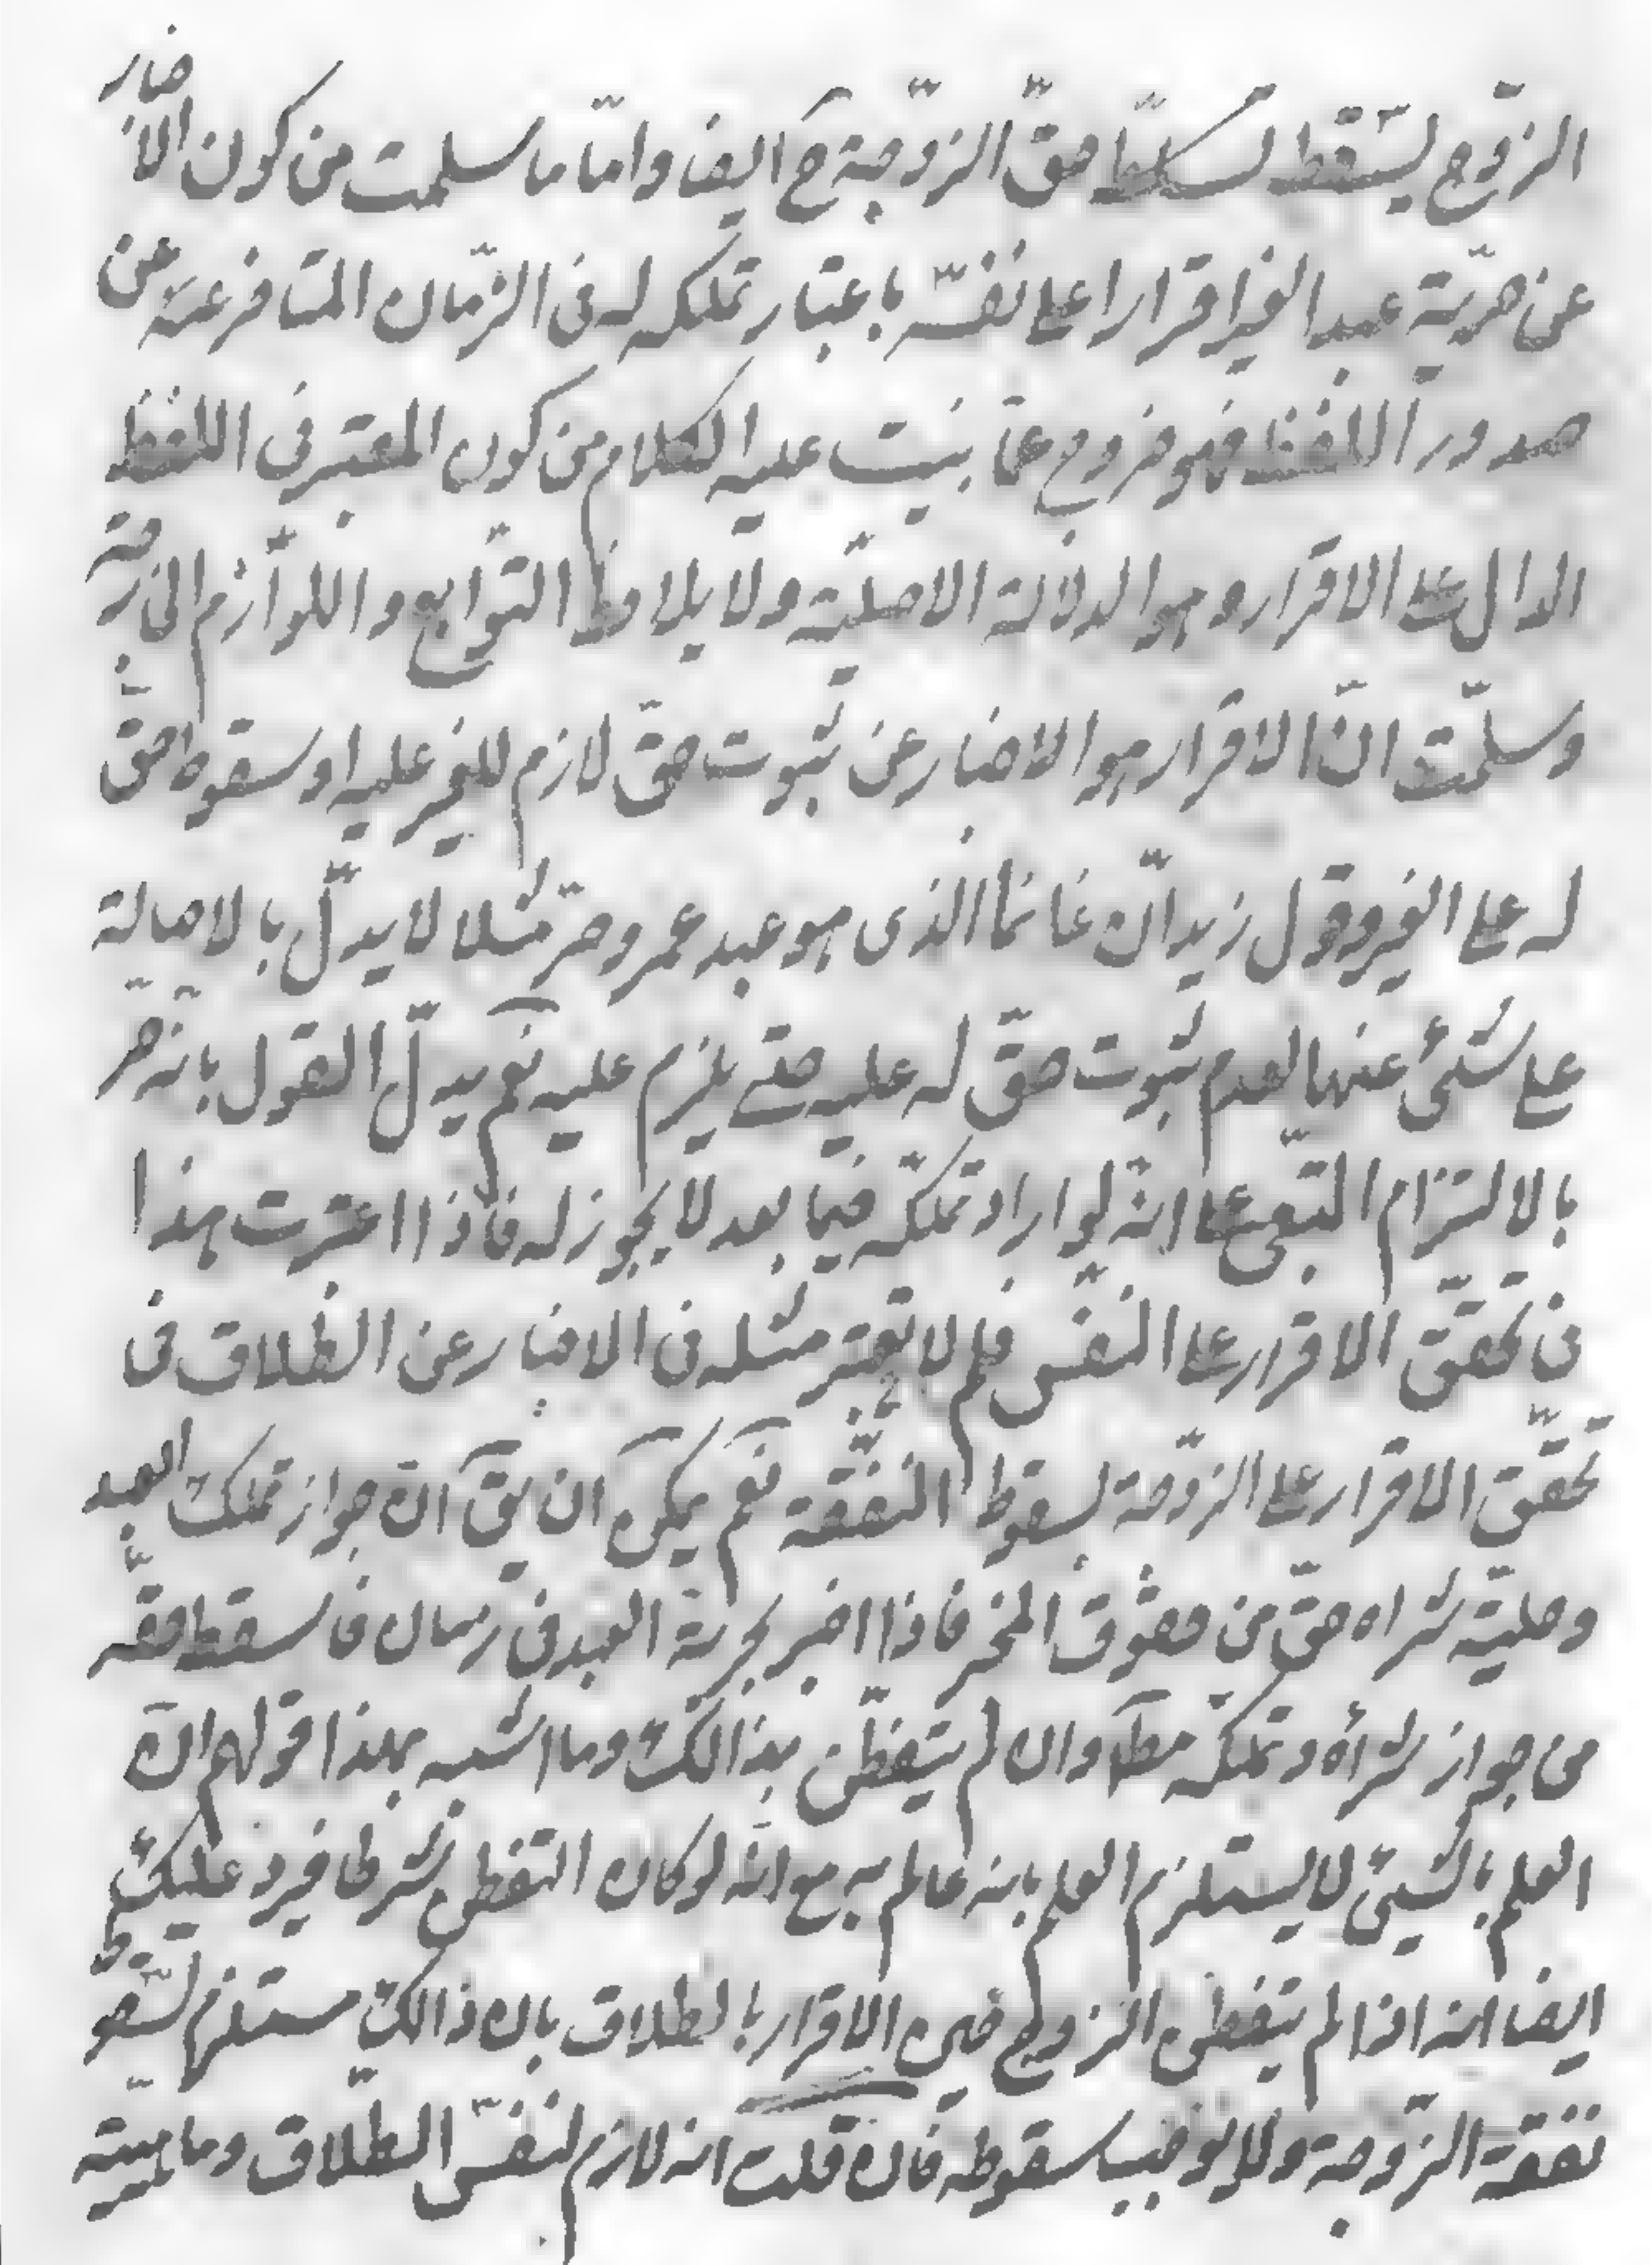 الزّوج ليسقط تسلّط حقّ الزوّجة ح ايضا وامّا ما سلمت من كون الاخبار
عن حرّية عبد الغير اقرارا على نفسه باعتبار تملكه له فى الزّمان المتاخر عن
صدور اللفظ فهو خروج عمّا بنيت عليه الكلام من كون المعتبر فى اللفظ
الدال على الاقرار وهو الدلالة الاصليّة ولا يلاحظ التّوابع واللوازم الخارجة
وسلّمت انّ الاقرار هو الاخبار عن ثبوت حقّ لازم للمخبر عليه او سقوط حقّ
له على الغير وقول زيد انّ غانما الذى هو عبد عمرو حرّ مثلا لا يدلّ بالاصالة
على شئ عنها لعدم ثبوت حقّ له عليه حتى يلزم عليه نعم يدلّ القول بانه حرّ
بالالتزام التبعى على انه لو اراد تملكه فيما بعد لا يجوز له فاذا اعتبرت هذا
فى تحقّق الاقرار على النفس فلم لا تعتبر مثله فى الاخبار عن الطلاق فى
تحقّق الاقرار على الزوّجة بسقوط النفقة نعم يمكن ان يق انّ جواز تملك العبد
وحليّة شراه حقّ من حقوق المخبر فاذا اخبر بحرية العبد فى زمان فاسقط حقّه
من جواز شرأه وتملكه مطآ وان لم يتفطّن بذالك وما اشبه بهذا قولهم انّ
العلم بالشيئ لا يستلزم العلم بانه عالم به مع انّه لو كان التفطن شرطا فيرد عليك
ايضا انه اذا لم يتفطن الزوج حين الاقرار بالطلاق بان ذالك مستلزم لسقوط
نفقة الزّوجة وللا يوجب سقوطه فان قلت انه لازم لنفس الطلاق وماهيته